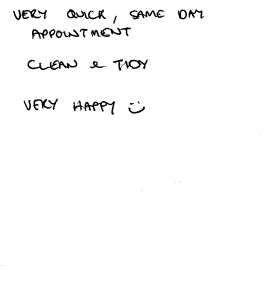 VERY QUICK, SAME DAY
APPOINTMENT
CLEAN & TIDY
VERY HAPPY :)